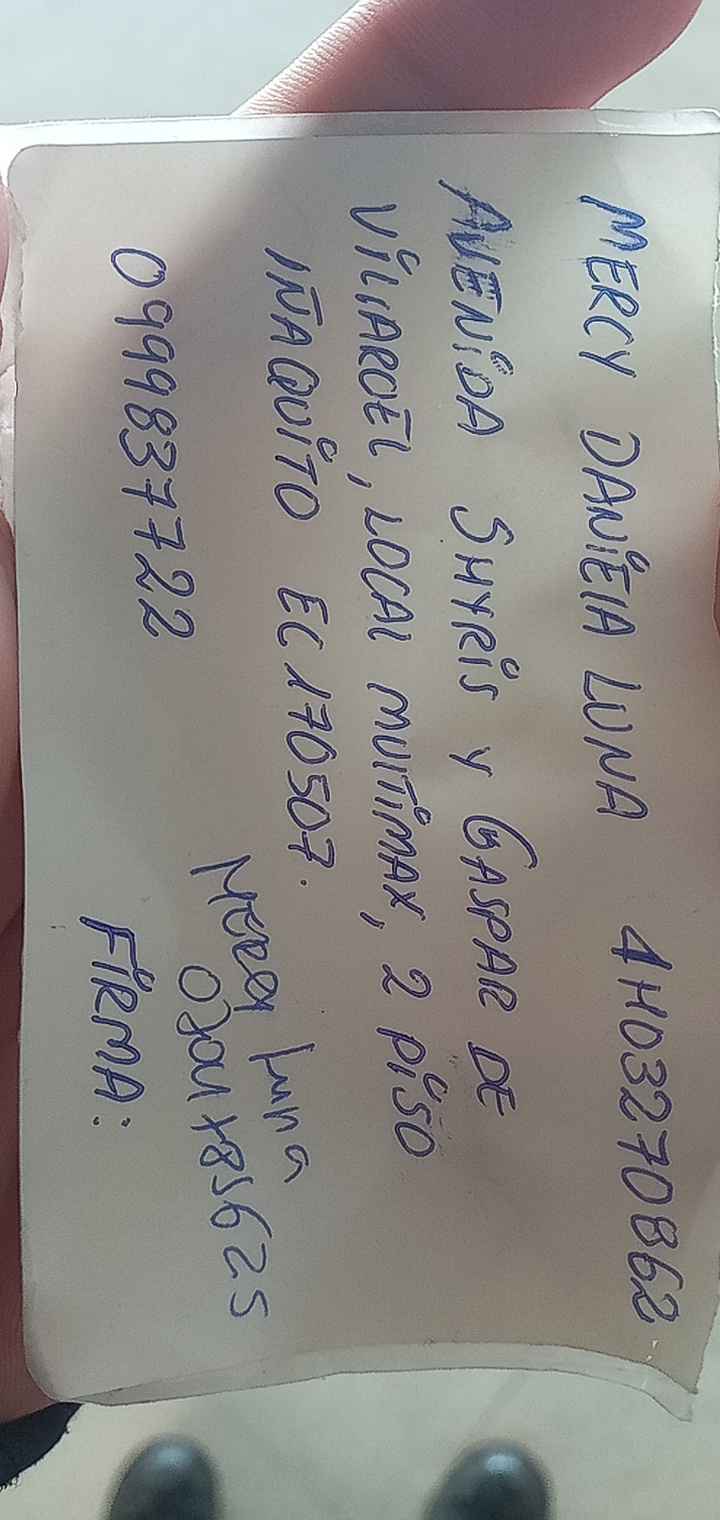 MERCY DANIELA LUNA 4H03270862
AVENIDA SHYRIS Y GASPAR DE
VILLAROEL, LOCAL MULTIMAX, 2 PISO
IÑAQUITO EC170507.
0999837722
Mercy Luna
FIRMA: